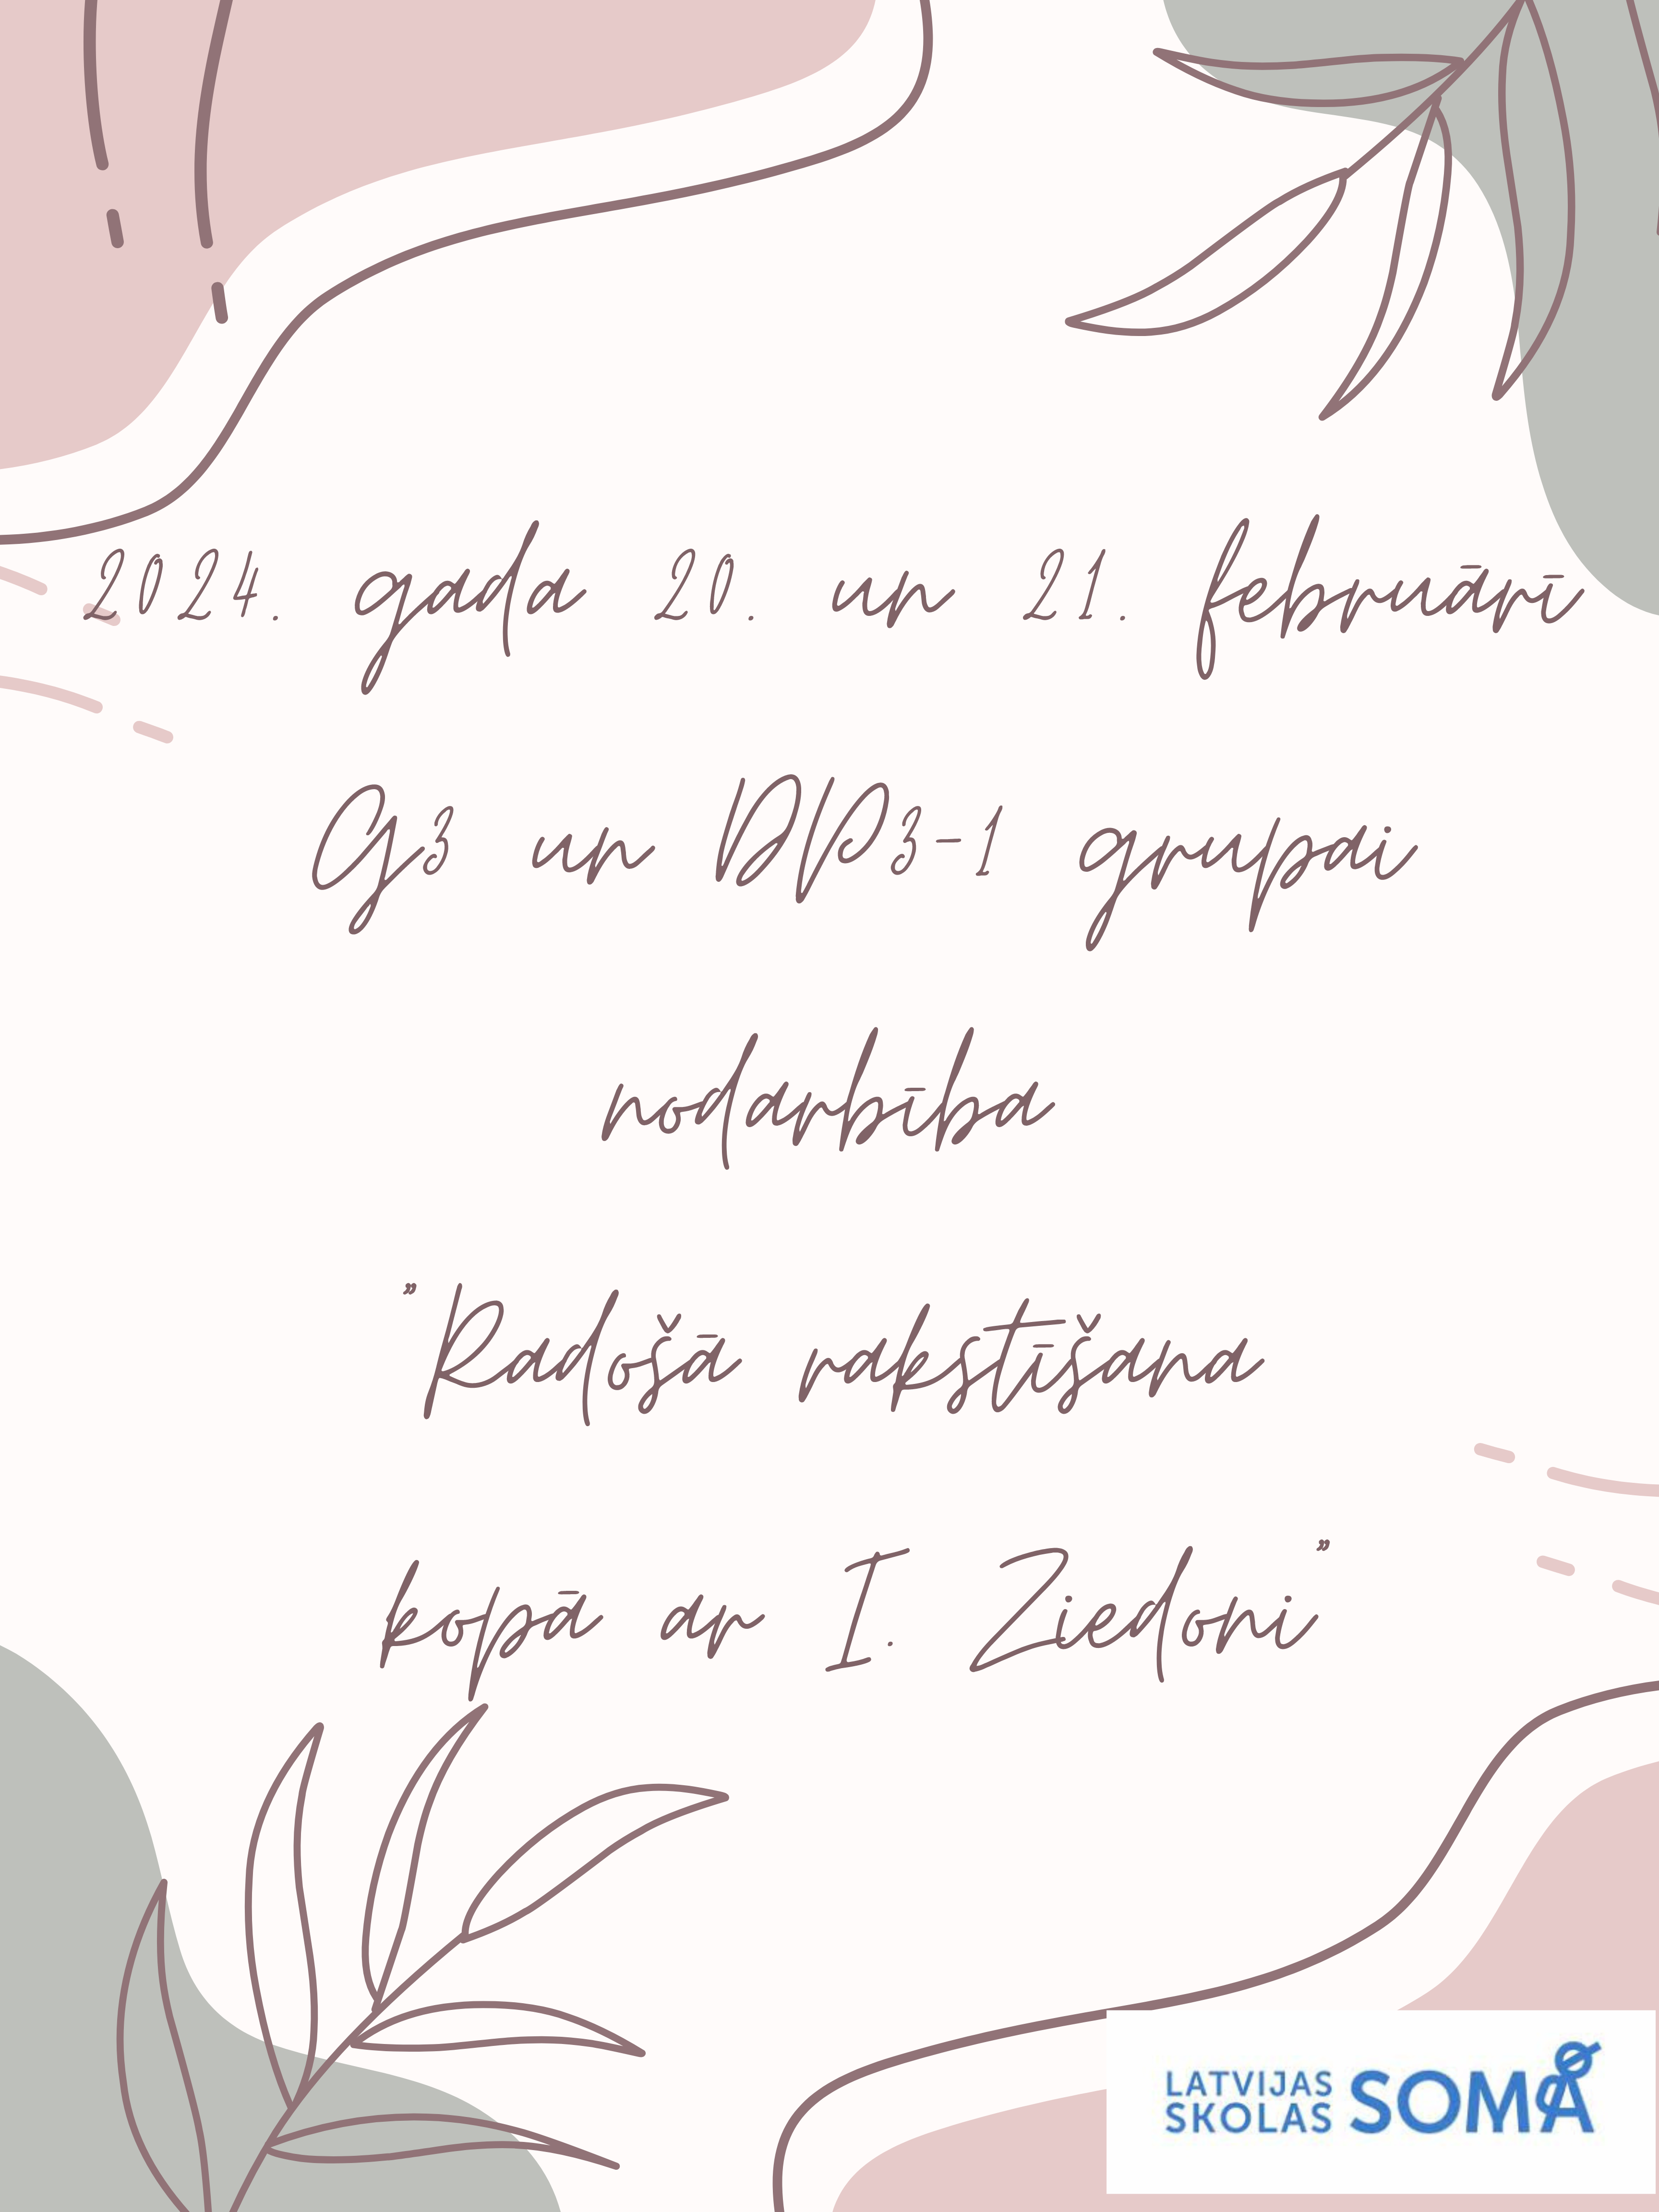 2024. gada 20. un 21. februārī
Gg3 un DP3-1 grupai
nodarbība
"Radošā rakstīšana
kopā ar I. Ziedoni"
LATVIJAS
SKOLAS SOMA